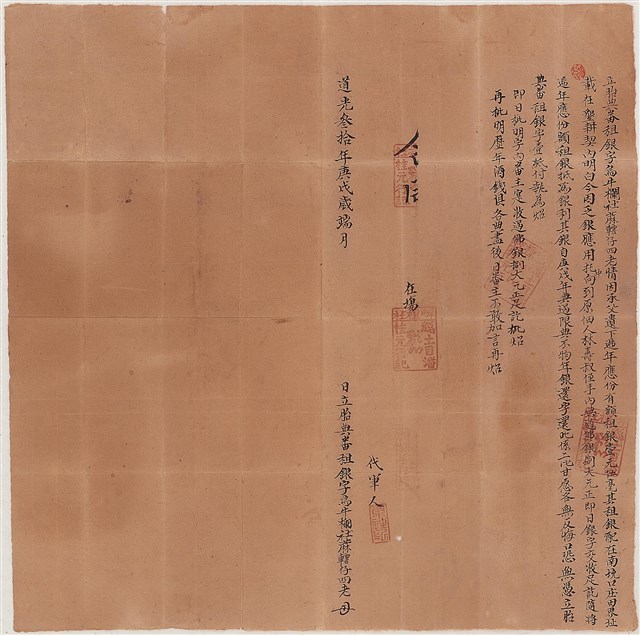 立胎典番租銀字烏牛欄社蔴轄仔四老情因承父遺下遞年應份有額租銀壹元伍毫其租銀配在南坑口庄田界址
載在墾耕契內明白今因乏銀應用托向到原佃人林喜叔侄手內典過佛銀捌大元正即日銀字交收足訖隨將
遞年應份額租銀抵為銀利其銀自庚戌年典過限典不拘年銀還字還此係二比甘愿各無反悔口恐無憑立胎
典番租銀字壹紙付執為炤
即日批明字內番主寔收過佛銀捌大元正足訖批炤
再批明歷年酒錢俱各典盡後日番主不敢加言再炤
在場
代筆人
道光叁拾年庚戌歲端月 日立胎典番租銀字烏牛欄社蔴轄仔四老